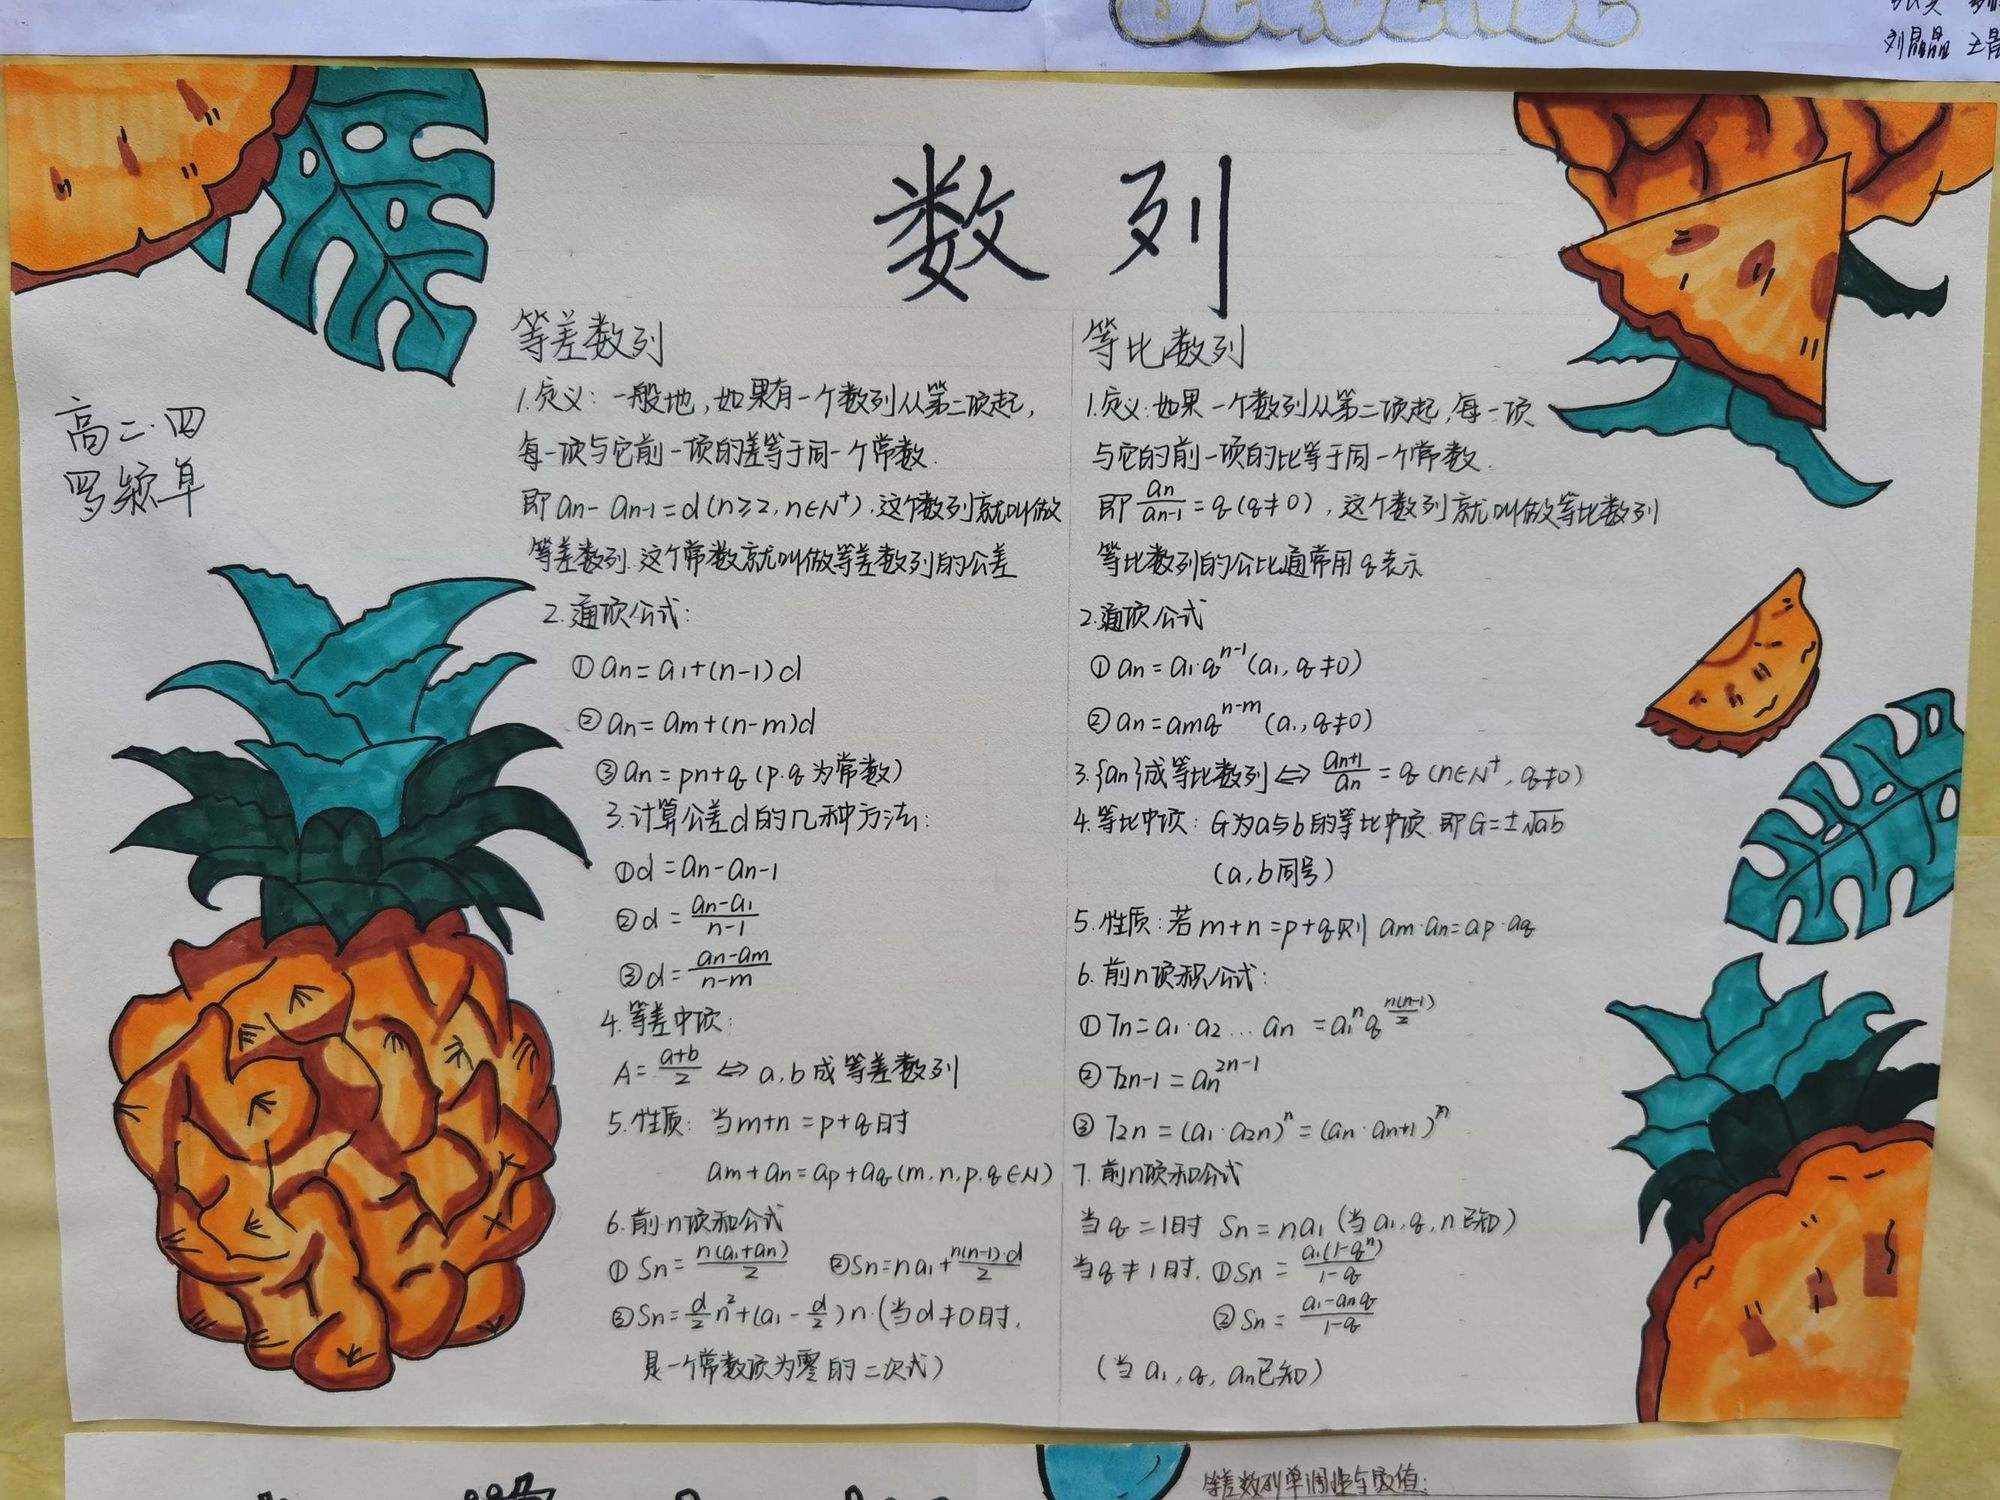 刘晶晶
数列
高二·四
罗颖卓
等差数列
1.定义：一般地，如果有一个数列从第二项起，
每一项与它前一项的差等于同一个常数.
即 an- an-1=d(n≥2, n∈N⁺), 这个数列就叫做
等差数列. 这个常数就叫做等差数列的公差
2.通项公式：
① an=a₁+(n-1)d
② an=am+(n-m)d
③ an=pn+q (p.q为常数)
3.计算公差d的几种方法：
①d=an-an-1
②d=(an-a₁)/(n-1)
③d=(an-am)/(n-m)
4.等差中项：
A=(a+b)/2 ⇔ a,b成等差数列
5.性质：当m+n=p+q时
am+an=ap+aq(m,n,p,q∈N)
6.前n项和公式
① Sn=n(a₁+an)/2 ②Sn=na₁+n(n-1)·d/2
③Sn=d/2n²+(a₁-d/2)n.(当d≠0时,
是一个常数项为零的二次式)
等比数列
1.定义:如果一个数列从第二项起,每一项
与它的前一项的比等于同一个常数.
即 an/an-1=q(q≠0), 这个数列就叫做等比数列
等比数列的公比通常用q表示
2.通项公式
① an=a₁·qⁿ⁻¹(a₁,q≠0)
② an=amqⁿ⁻ᵐ(a₁,q≠0)
3.{an}成等比数列⇔an+1/an=q(n∈N⁺,q≠0)
4.等比中项：G为a与b的等比中项.即G=±√ab
(a,b同号)
5.性质:若m+n=p+q则 am·an=ap·aq
6.前n项积公式：
① Tn=a₁·a₂...an=a₁ⁿq^(n(n-1)/2)
② T2n-1=an²ⁿ⁻¹
③ T2n=(a₁·a2n)ⁿ=(an·an+1)ⁿ
7.前n项和公式
当q=1时 Sn=na₁(当a₁,q,n已知)
当q≠1时. ①Sn=a₁(1-qⁿ)/(1-q)
②Sn=(a₁-anq)/(1-q)
(当a₁,q,an已知)